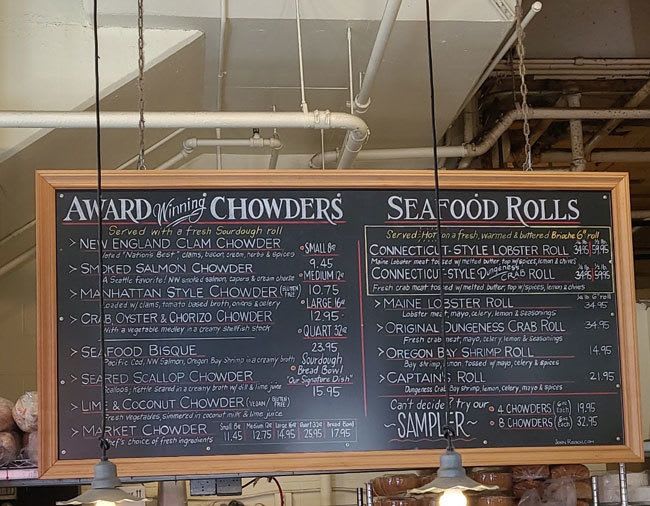 AWARD Winning CHOWDERS
Served with a fresh Sourdough roll
> NEW ENGLAND CLAM CHOWDER
Voted "Nation's Best" clams, bacon, cream, herbs & spices
> SMOKED SALMON CHOWDER
A Seattle favorite! NW smoked salmon, capers & cream cheese
> MANHATTAN STYLE CHOWDER (GLUTEN FREE)
Loaded w/ clams, tomato based broth, onions & celery
> CRAB, OYSTER & CHORIZO CHOWDER
With a vegetable medley in a creamy shellfish stock
> SEAFOOD BISQUE
Pacific Cod, NW Salmon, Oregon Bay Shrimp in a creamy broth
> SEARED SCALLOP CHOWDER
Scallops, lettle seared in a creamy broth w/ dill & lime juice
> LIME & COCONUT CHOWDER (VEGAN / GLUTEN FREE)
Fresh Vegetables simmered in coconut milk & lime juice
> MARKET CHOWDER
Chef's choice of fresh ingredients
SMALL 8oz
9.45
MEDIUM 12oz
10.75
LARGE 16oz
12.95
QUART 32oz
23.95
Sourdough
Bread Bowl
"Our Signature Dish"
15.95
Small 8oz Medium 12oz Large 16oz Quart 32oz Bread Bowl
11.45 12.75 14.95 25.95 17.95
SEAFOOD ROLLS
Served: Hot on a fresh, warmed & buttered Brioche 6" roll
CONNECTICUT-STYLE LOBSTER ROLL
34.95 59.95
Maine lobster meat tossed w/ melted butter, top w/ spices, lemon & chives
CONNECTICUT-STYLE Dungeness CRAB ROLL
34.95 59.95
Fresh crab meat tossed w/ melted butter, top w/ spices, lemon & chives
> MAINE LOBSTER ROLL 34.95
Lobster meat, mayo, celery, lemon & seasonings
> ORIGINAL DUNGENESS CRAB ROLL 34.95
Fresh crab meat, mayo, celery, lemon & seasonings
> OREGON BAY SHRIMP ROLL 14.95
Bay shrimp, lemon, tossed w/ mayo, celery & spices
> CAPTAIN'S ROLL 21.95
Dungeness Crab, Bay shrimp, lemon, celery, mayo & spices
Can't decide? try our
~SAMPLER~
4 CHOWDERS (6oz Each) 19.95
8 CHOWDERS (6oz Each) 32.95
JOHN ROZICH.COM